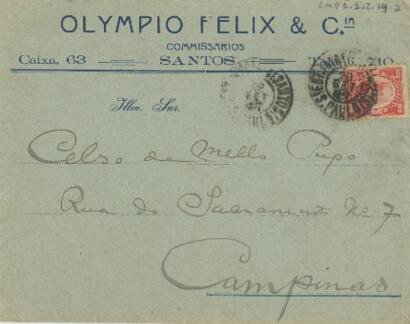 OLYMPIO FELIX & C.ia
COMMISSARIOS
Caixa, 63 SANTOS
Illm. Snr.
Celso de Mello Pupo
Rua do Sacramento No 7
Campinas